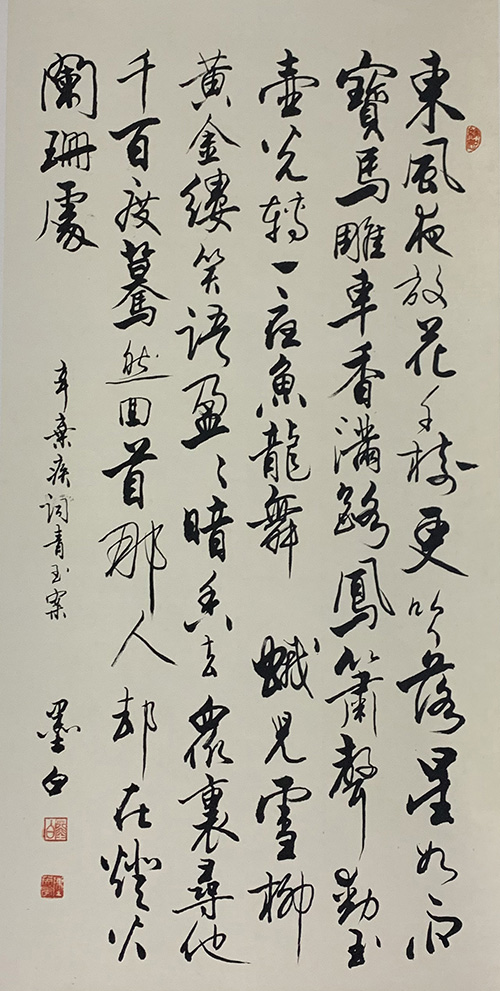 東風夜放花千樹更吹落星如雨
寶馬雕車香滿路鳳簫聲動玉
壺光轉一夜魚龍舞 蛾兒雪柳
黃金縷笑語盈〻暗香去眾裏尋他
千百度驀然回首那人却在燈火
闌珊處
辛棄疾詞青玉案
墨白